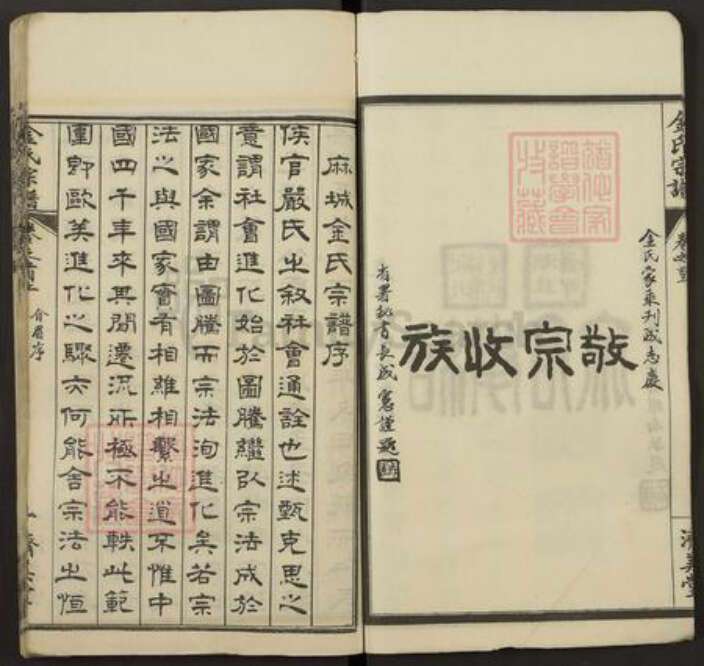 金氏宗譜
卷之首
濟美堂
金氏家乘刊成志慶
敬宗收族
省署秘書長成憲謹題
麻城金氏宗譜序
侯官嚴氏之叙社會通詮也述甄克思之
意謂社會進化始於圖騰繼以宗法成於
國家余謂由圖騰而宗法洵進化矣若宗
法之與國家會有相維相繫之道不惟中
國四千年來其間遷流所極不能軼此範
圍即歐美進化之驟亦何能舍宗法之恒
金氏宗譜
序
一
濟美堂